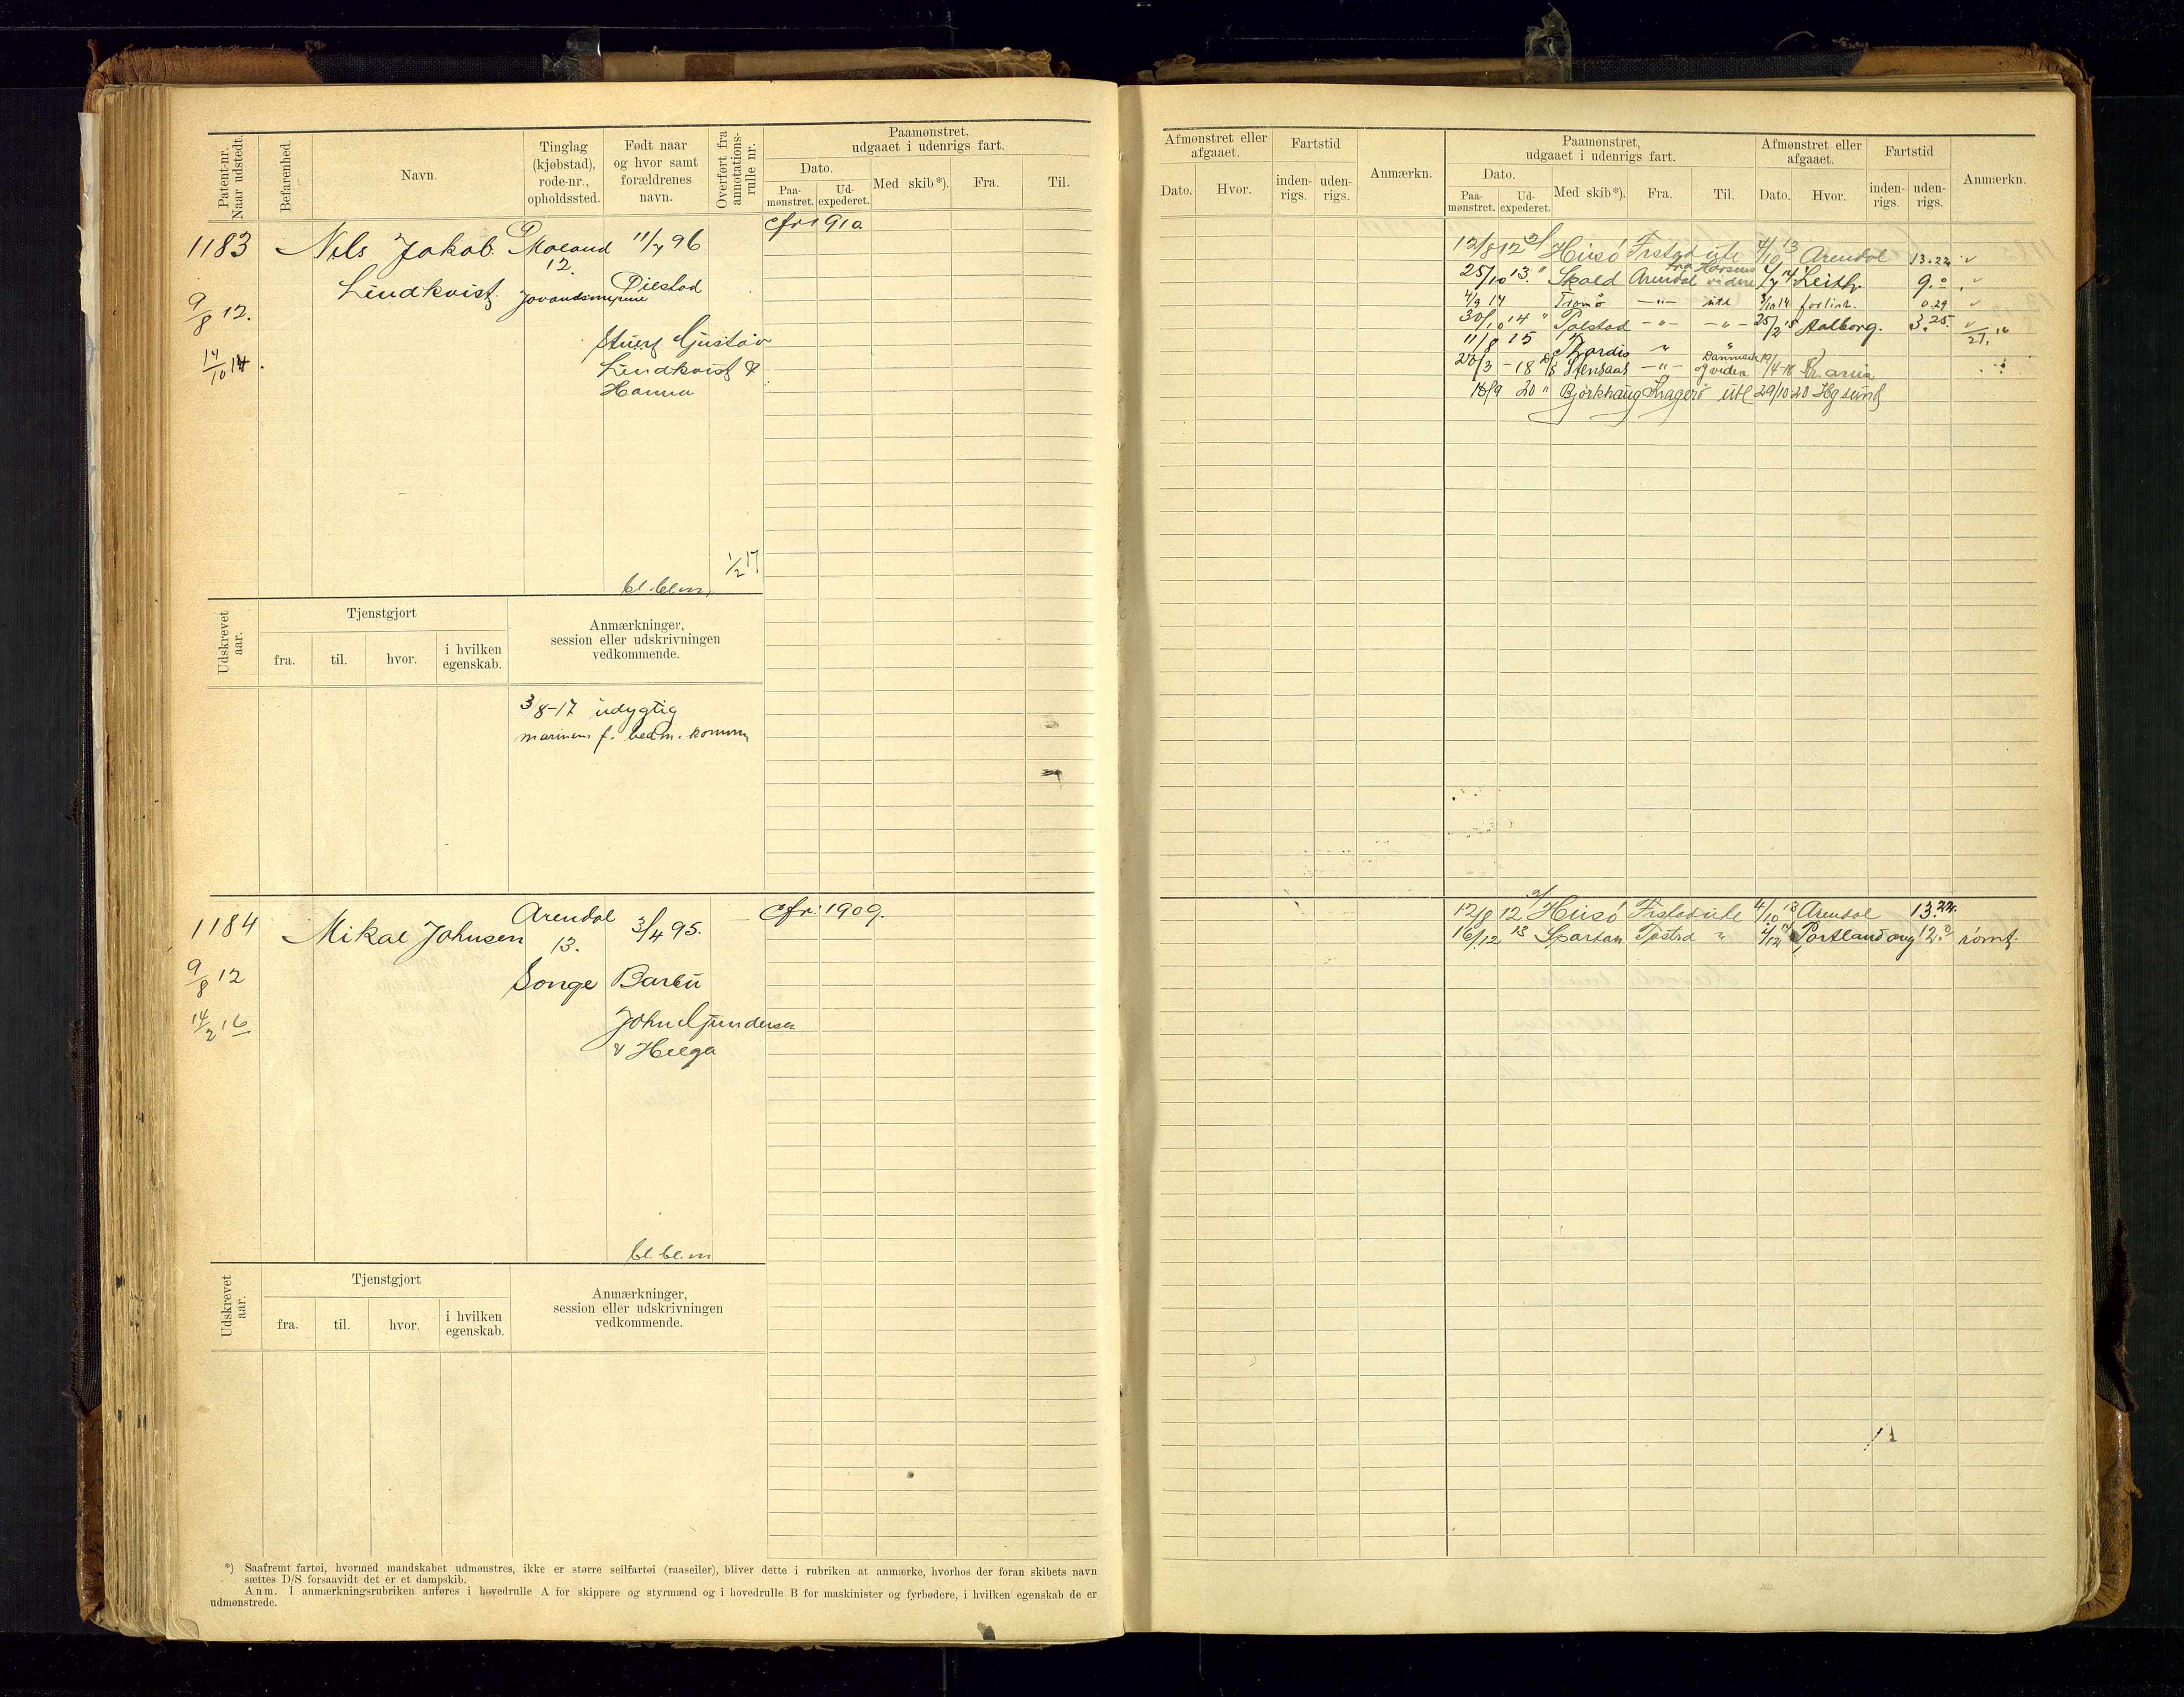 Patent-nr. Naar udstedt.
Befarenhed.
Navn.
Tinglag (kjøbstad), rode-nr., opholdssted.
Født naar og hvor samt forældrenes navn.
Overført fra annotations-rulle nr.
Paamønstret, udgaaet i udenrigs fart.
Dato.
Paa-mønstret.
Ud-expederet.
Med skib*).
Fra.
Til.
Afmønstret eller afgaaet.
Dato.
Hvor.
Fartstid
inden-rigs.
uden-rigs.
Anmærkn.
Paamønstret, udgaaet i udenrigs fart.
Dato.
Paa-mønstret.
Ud-expederet.
Med skib*).
Fra.
Til.
Afmønstret eller afgaaet.
Dato.
Hvor.
Fartstid
inden-rigs.
uden-rigs.
Anmærkn.
1183 Nils Jakob Moland 11/7 96 cfr 1910
Lindkvist 12.
9/8 12.
14/10 14.
Gustav
Lindkvist &
Hanna
1/2 17
bl. bl. m.
12/8 12 Hisø Frstad utl 4/10 13 Arendal 13.22 v
25/10 13 " Skald Arendal fra Horsens videre 4/7 14 Leith 9.0
4/9 14 Tromø -"- utl 3/10 14 forlist. 0.29 v
30/10 14 " -"- -"- 25/2 15 Aalborg. 3.25.
11/8 15 " "
20/3 - 18 D/S Stensaas -"- Danmark og videre 19/4-18 Kr.ania
18/9 20 " Bjørkhaug Kragerø utl 29/10 20 Hgsund
Udskrevet aar.
Tjenstgjort
fra.
til.
hvor.
i hvilken egenskab.
Anmærkninger, session eller udskrivningen vedkommende.
3/8-17 udygtig
marinen f. bedm. komm
1184 Mikal Johnsen Arendal 3/4 95. cfr: 1909.
13.
9/8 12 Songe Barbu
14/2 16 John Gundersen
& Helga
bl. bl. m
12/8 12 Hisø Frstad utl 4/10 13 Arendal 13.22.
16/12 13 Spartan " Portland 12.0 rømt.
Udskrevet aar.
Tjenstgjort
fra.
til.
hvor.
i hvilken egenskab.
Anmærkninger, session eller udskrivningen vedkommende.
*) Saafremt fartøi, hvormed mandskabet udmønstres, ikke er større seilfartøi (raaseiler), bliver dette i rubriken at anmærke, hvorhos der foran skibets navn
sættes D/S forsaavidt det er et dampskib.
Anm. I anmærkningsrubriken anføres i hovedrulle A for skippere og styrmænd og i hovedrulle B for maskinister og fyrbødere, i hvilken egenskab de er
udmønstrede.